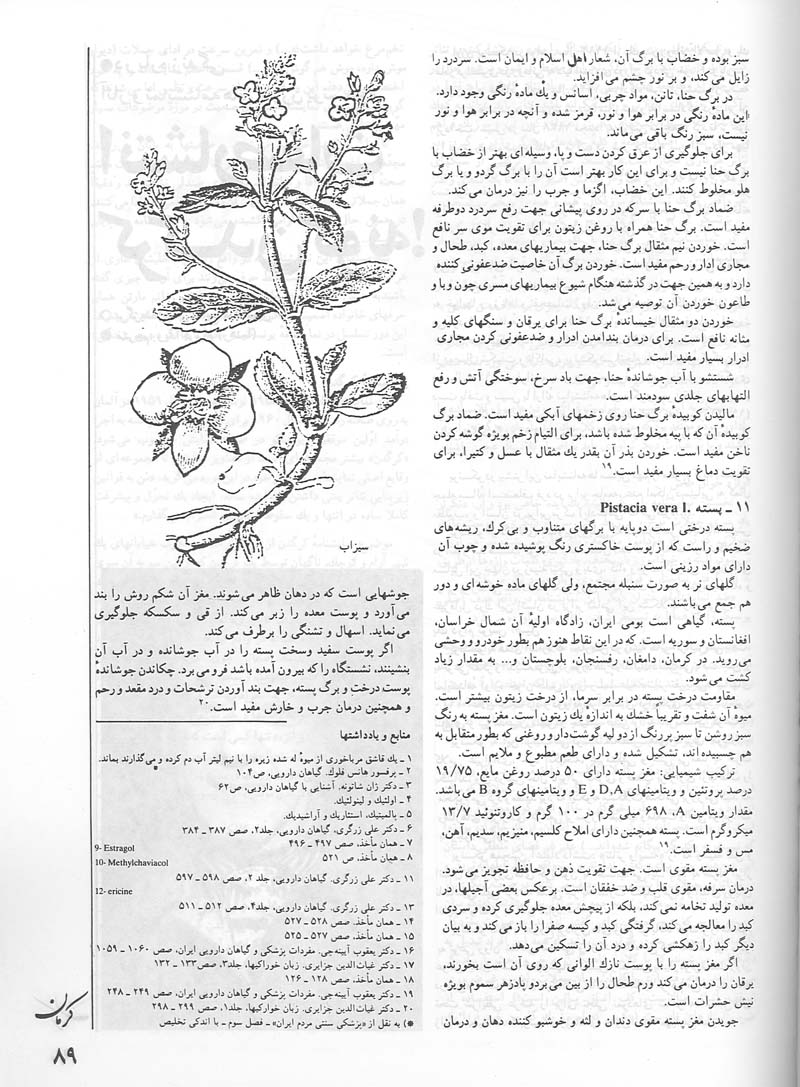 سبز بوده و خضاب با برگ آن، شعار اهل اسلام و ایمان است. سردرد را
زایل می‌کند، و بر نور چشم می‌افزاید.
در برگ حنا، تانن، مواد چربی، اسانس و یك مادهٔ رنگی وجود دارد.
این مادهٔ رنگی در برابر هوا و نور، قرمز شده و آنچه در برابر هوا و نور
نیست، سبز رنگ باقی می‌ماند.
برای جلوگیری از عرق کردن دست و پا، وسیله‌ای بهتر از خضاب با
برگ حنا نیست و برای این کار بهتر است آن را با برگ گردو و یا برگ
هلو مخلوط کنند. این خضاب، اگزما و جرب را نیز درمان می‌کند.
ضماد برگ حنا با سرکه در روی پیشانی جهت رفع سردرد دوطرفه
مفید است. برگ حنا همراه با روغن زیتون برای تقویت موی سر نافع
است. خوردن نیم مثقال برگ حنا، جهت بیماریهای معده، کبد، طحال و
مجاری ادار و رحم مفید است. خوردن برگ آن خاصیت ضدعفونی کننده
دارد و به همین جهت در گذشته هنگام شیوع بیماریهای مسری چون وبا و
طاعون خوردن آن توصیه می‌شد.
خوردن دو مثقال خیسانده برگ حنا برای یرقان و سنگهای کلیه و
مثانه نافع است. برای درمان بندآمدن ادرار و ضدعفونی کردن مجاری
ادرار بسیار مفید است.
شستشو با آب جوشاندهٔ حنا، جهت باد سرخ، سوختگی آتش و رفع
التهابهای جلدی سودمند است.
مالیدن کوبیدهٔ برگ حنا روی زخمهای آبکی مفید است. ضماد برگ
کوبیدهٔ آن که با پیه مخلوط شده باشد، برای التیام زخم بویژه گوشه کردن
ناخن مفید است. خوردن بذر آن بقدر یك مثقال با عسل و کتیرا، برای
تقویت دماغ بسیار مفید است.۱۹
۱۱ ـ پسته Pistacia vera l.
پسته درختی است دوپایه با برگهای متناوب و بی‌کرك، ریشه‌های
ضخیم و راست که از پوست خاکستری رنگ پوشیده شده و چوب آن
دارای مواد رزینی است.
گلهای نر به صورت سنبله مجتمع، ولی گلهای ماده خوشه‌ای و دور
هم جمع می‌باشند.
پسته، گیاهی است بومی ایران، زادگاه اولیهٔ آن شمال خراسان،
افغانستان و سوریه است. که در این نقاط هنوز هم بطور خودرو و وحشی
می‌روید. در کرمان، دامغان، رفسنجان، بلوچستان و... به مقدار زیاد
کشت می‌شود.
مقاومت درخت پسته در برابر سرما، از درخت زیتون بیشتر است.
میوهٔ آن شفت و تقریباً خشك به اندازهٔ یك زیتون است. مغز پسته به رنگ
سبز روشن تا سبز پررنگ از دو لپه گوشت‌دار و روغنی که بطور متقابل به
هم چسبیده‌اند، تشکیل شده و دارای طعم مطبوع و ملایم است.
ترکیب شیمیایی: مغز پسته دارای ۵۰ درصد روغن مایع، ۱۹/۷۵
درصد پروتئین و ویتامینهای D,A و E و ویتامینهای گروه B می‌باشد.
مقدار ویتامین A، ۶۹۸ میلی گرم در ۱۰۰ گرم و کاروتنوئید ۱۳/۷
میکروگرم است. پسته همچنین دارای املاح کلسیم، منیزیم، سدیم، آهن،
مس و فسفر است.۱۹
مغز پسته مقوی است. جهت تقویت ذهن و حافظه تجویز می‌شود.
درمان سرفه، مقوی قلب و ضد خفقان است. برعکس بعضی آجیلها، در
معده تولید تخامه نمی‌کند، بلکه از پیچش معده جلوگیری کرده و سردی
کبد را معالجه می‌کند، گرفتگی کبد و کیسه صفرا را باز می‌کند و به بیان
دیگر کبد را زهکشی کرده و درد آن را تسکین می‌دهد.
اگر مغز پسته را با پوست نازك الوانی که روی آن است بخورند،
یرقان را درمان می‌کند ورم طحال را از بین می‌برد و پادزهر سموم بویژه
نیش حشرات است.
جویدن مغز پسته مقوی دندان و لثه و خوشبو کننده دهان و درمان
سبزاب
جوشهایی است که در دهان ظاهر می‌شوند. مغز آن شکم روش را بند
می‌آورد و پوست معده را زبر می‌کند. از قی و سکسکه جلوگیری
می‌نماید. اسهال و تشنگی را برطرف می‌کند.
اگر پوست سفید وسخت پسته را در آب جوشانده و در آب آن
بنشینند، نشستگاه را که بیرون آمده باشد فرو می‌برد. چکاندن جوشاندهٔ
پوست درخت و برگ پسته، جهت بند آوردن ترشحات و درد مقعد و رحم
و همچنین درمان جرب و خارش مفید است.۲۰
منابع و یادداشتها
۱ ـ یك قاشق مرباخوری از میوهٔ له شده زیره را با نیم لیتر آب دم کرده و می‌گذارند بماند.
۲ ـ پرفسور هانس فلوك. گیاهان دارویی، ص۱۰۴
۳ ـ دکتر ژان شاتونه. آشنایی با گیاهان دارویی، ص۶۲
۴ ـ اولئیك و لینولئیك.
۵ ـ پالمیتیك، استئاریك و آراشیدیك.
۶ ـ دکتر علی زرگری. گیاهان دارویی، جلد۲، صص ۳۸۷ ـ ۳۸۴
۷ ـ همان مأخذ، صص ۴۹۷ ـ ۴۹۶
۸ ـ همان مأخذ، ص ۵۲۱
9- Estragol
10- Methylchaviacol
۱۱ ـ دکتر علی زرگری. گیاهان دارویی، جلد ۲، صص ۵۹۸ ـ ۵۹۷
12- ericine
۱۳ ـ دکتر علی زرگری. گیاهان دارویی، جلد۴، صص ۵۱۲ ـ ۵۱۱
۱۴ ـ همان مأخذ، صص ۵۲۸ ـ ۵۲۷
۱۵ ـ همان مأخذ، صص ۵۲۷ ـ ۵۲۵
۱۶ ـ دکتر یعقوب آیینه‌چی. مفردات پزشکی و گیاهان دارویی ایران، صص ۱۰۶۰ ـ ۱۰۵۹
۱۷ ـ دکتر غیاث‌الدین جزایری. زبان خوراکیها، جلد۳، صص۱۳۳ ـ ۱۳۲
۱۸ ـ همان مأخذ، صص ۱۲۸ ـ ۱۲۶
۱۹ ـ دکتر یعقوب آیینه‌جی. مفردات پزشکی و گیاهان دارویی ایران، صص ۲۴۹ ـ ۲۴۸
۲۰ ـ دکتر غیاث الدین جزایری. زبان خوارکیها، جلد۱، صص ۲۹۹ ـ ۲۹۸
*) به نقل از «پزشکی سنتی مردم ایران» ـ فصل سوم ـ با اندکی تخلیص
کرمان
۸۹